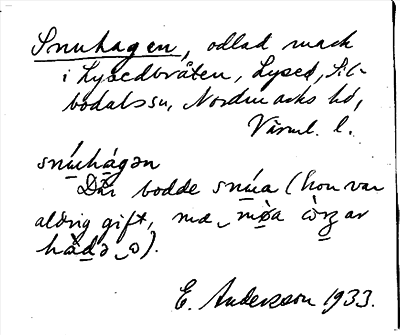 Snuhagen, odlad mark
i Lysedbråten, Lysed, Sil-
bodals sn, Nordmarks hd,
Värml. l.
snúuhágən
Där bodde snúa (hon var
aldrig gift, ma
hàdə
E. Andersson 1933.